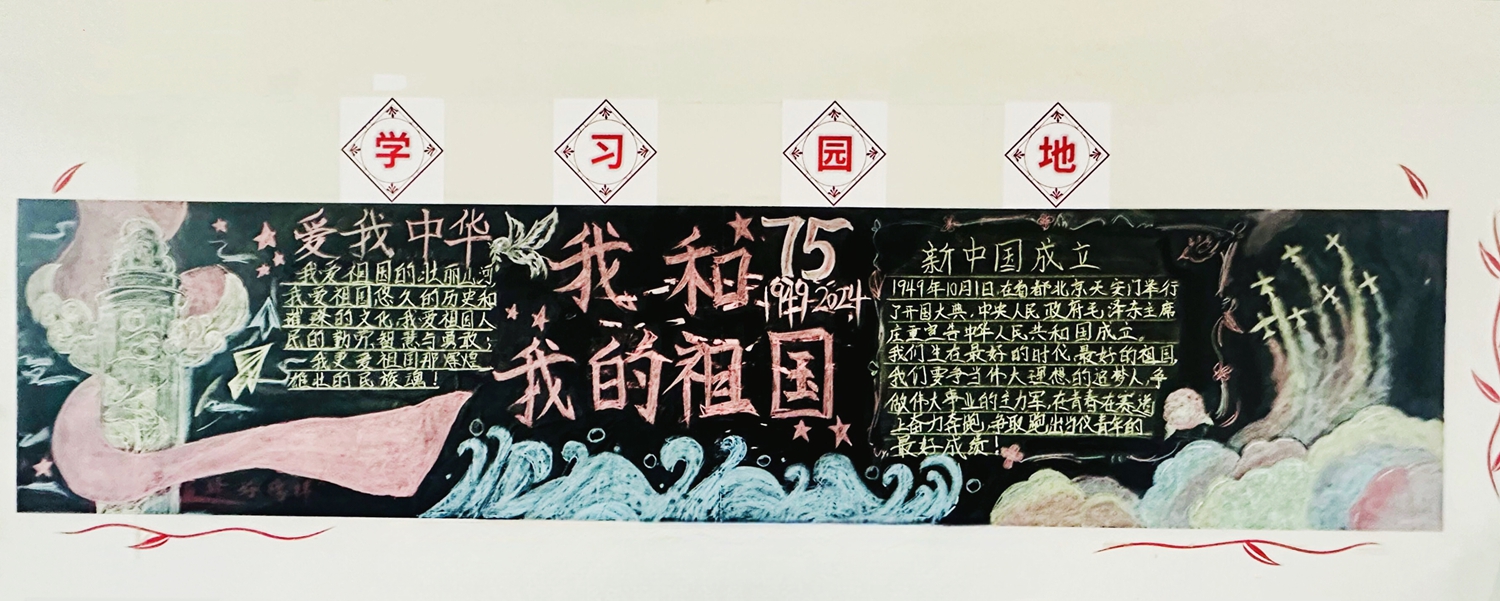 学习园地
爱我中华
我爱祖国的壮丽山河
我爱祖国悠久的历史和
璀璨的文化,我爱祖国人
民的勤劳、智慧与勇敢;
我更爱祖国那辉煌
雄壮的民族魂!
我和
75
1949-2024
我的祖国
新中国成立
1949年10月1日,在首都北京天安门举行
了开国大典,中央人民政府毛泽东主席
庄重宣告中华人民共和国成立。
我们生在最好的时代,最好的祖国,
我们要争当伟大理想的追梦人,争
做伟大事业的主力军,在青春在赛道
上奋力奔跑,争取跑出当代青年的
最好成绩!